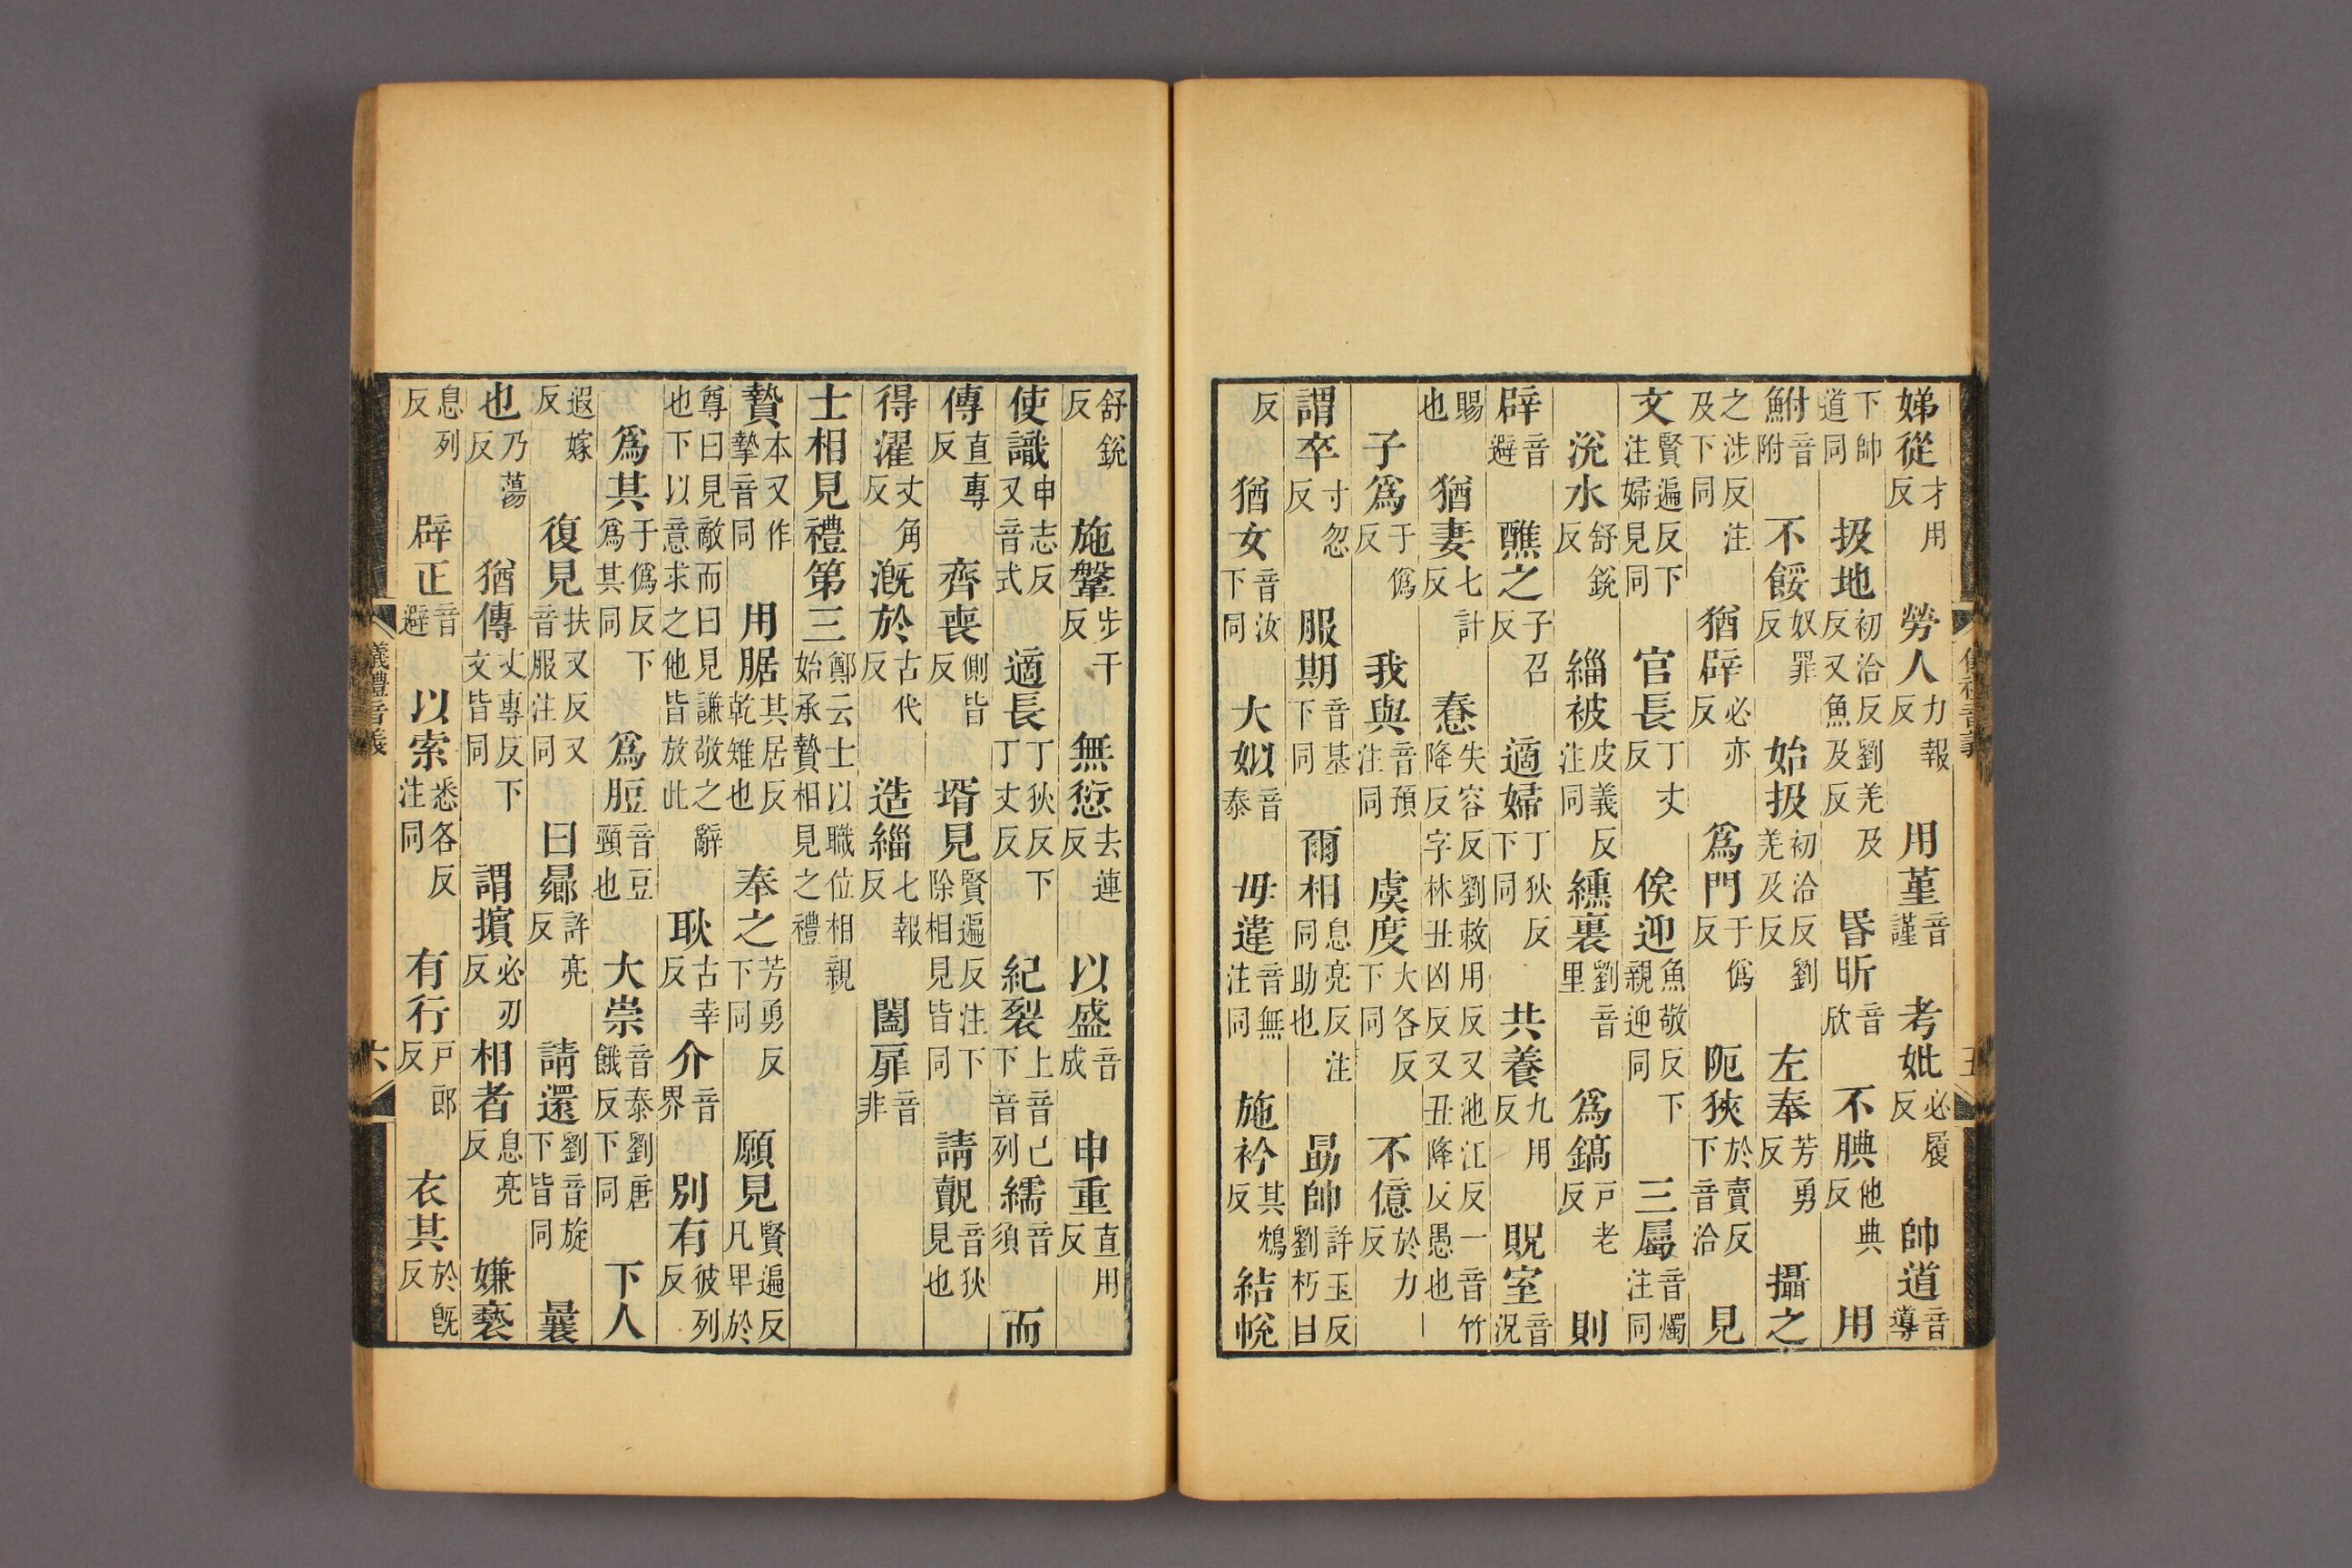 娣從才用反 勞人力報反 用堇音謹 考妣必履反 帥道音導
下帥道同 扱地初洽反劉羌及反又魚及反 昬昕音欣 不腆他典反 用
鮒音附 不餒奴罪反 始扱初洽反劉羌及反 左奉芳勇反 攝之
之涉反注及下同 猶辟必亦反 爲門于僞反 阨狹於賣反下音洽 見
文賢遍反下注婦見同 官長丁丈反 俟迎魚敬反下親迎同 三屬音燭注同
涗水舒銳反 緇被皮義反注同 纁裏劉音里 爲鎬戸老反 則
辟音避 醮之子召反 適婦丁狄反下同 共養九用反 貺室音況
賜也 猶妻七計反 惷失容反劉敕用反又池江反一音竹降反字林丑凶反又丑降反愚也
子爲于僞反 我與音預注同 虞度大各反下同 不億於力反
謂卒寸忽反 服期音基下同 爾相息亮反注同助也 勗帥許玉反劉朽目
反 猶女音汝下同 大姒音泰 毋違音無注同 施衿其鴆反 結帨
舒銳反 施鞶步干反 無愆去連反 以盛音成 申重直用反
使識申志反又音式 適長丁狄反下丁丈反 紀裂上音己下音列 繻音須 而
傳直專反 齊喪側皆反 壻見賢遍反注下除相見皆同 請覿音狄見也
得濯丈角反 漑於古代反 造緇七報反 闔扉音非
士相見禮第三鄭云士以職位相親始承贄相見之禮
贄本又作摯音同 用腒其居反乾雉也 奉之芳勇反下同 願見賢遍反凡卑於
尊曰見敵而曰見謙敬之辭也下以意求之他皆放此 耿古幸反 介音界 別有彼列反
爲其于僞反下爲其同 爲脰音豆頸也 大崇音泰劉唐餓反下同 下人
遐嫁反 復見扶又反又音服注同 曰曏許亮反 請還劉音旋下皆同 曩
也乃蕩反 猶傳丈專反下文皆同 謂擯必刃反 相者息亮反 嫌褻
息列反 辟正音避 以索悉各反注同 有行戸郎反 衣其於旣反
儀禮音義
六
儀禮音義
五